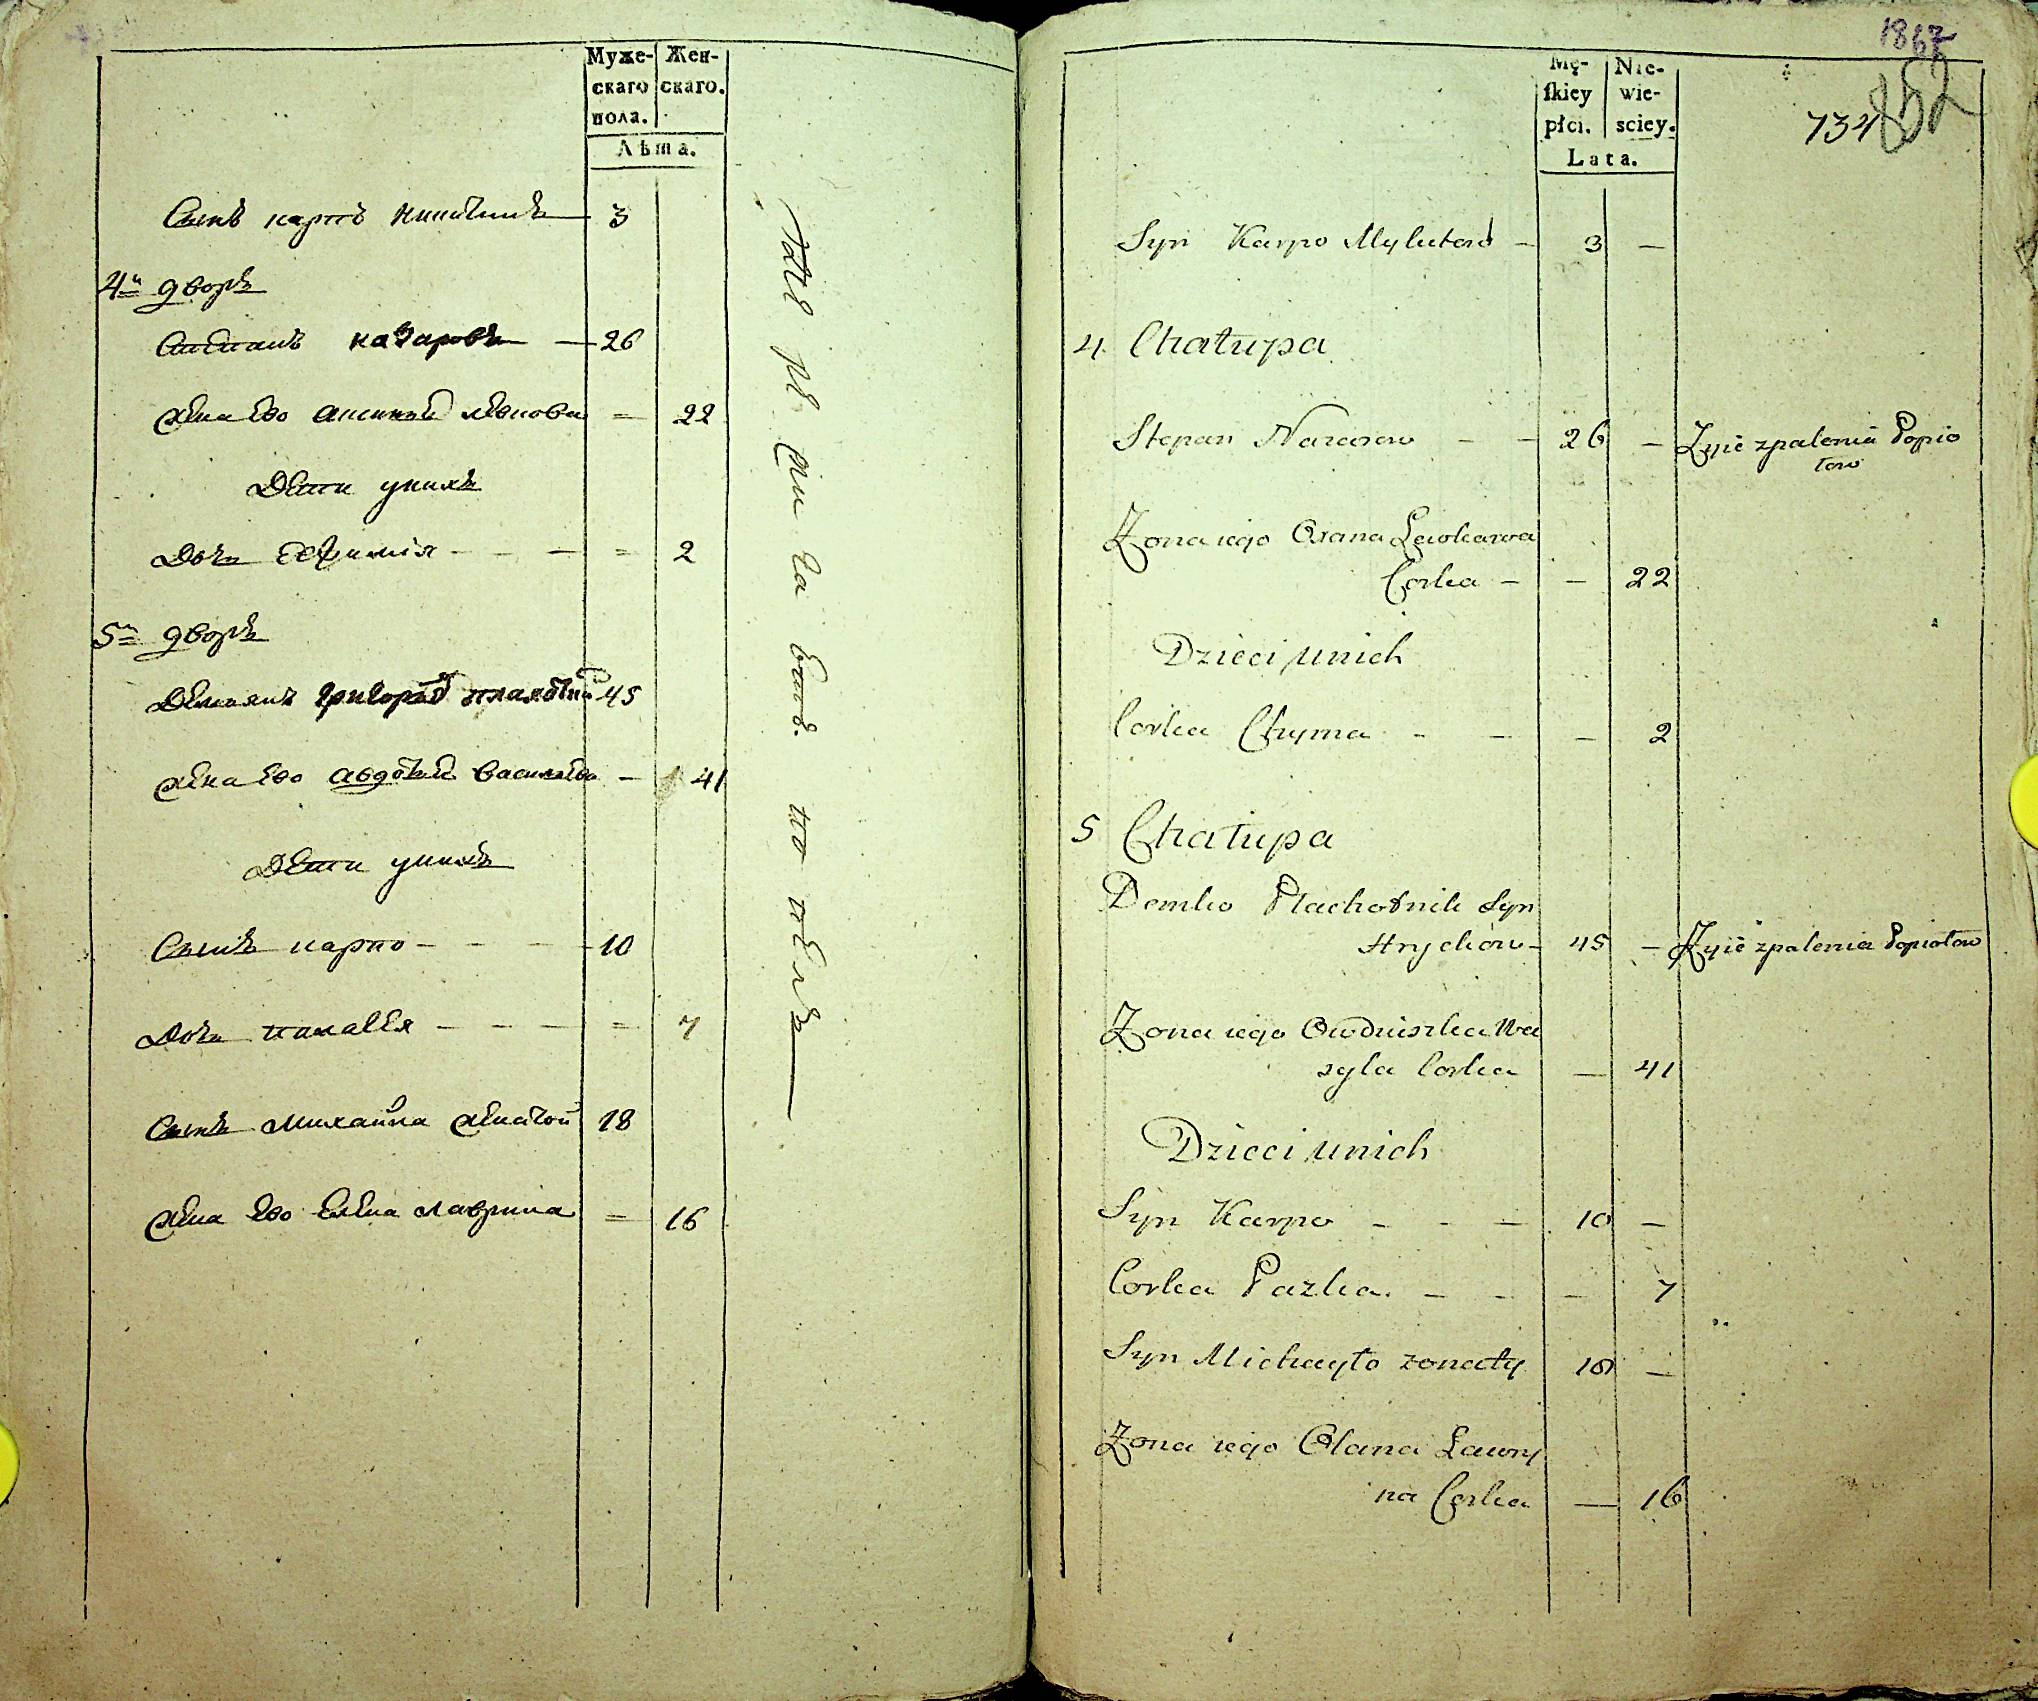 Муже-
скаго
пола.
Жен-
скаго.
Лѣта.
Сынъ карпъ никитинъ 3
4й дворъ
Степанъ назаровъ — 26
жена ево аксинья левкова = 22
Дети унихъ
Дочь евфимія - - — = 2
5й дворъ
Демянъ григорьевъ плахотникъ 45
жена ево авдотья васильева — 41
Дети унихъ
Сынъ карпо - - - 10
Дочь палагея - - - = 7
Сынъ михайла женатой 18
жена ево елена лаврина = 16
1867
852
734
Mę-
ſkiey
płci.
Nie-
wie-
sciey.
Lata.
Syn Karpo Mykitow - 3 —
4 Chałupa
Stepan Nazarow - - 26 — Zyie zpalenia Popio
łow
Zona iego Oxana Lewkowa
Corka - - 22
Dzieci unich
Corka Chyma - - - 2
5 Chałupa
Demko Płachotnik Syn
Hryckow - 45 — Zyie zpalenia Popiołow
Zona iego Owdieszka Wa
syla Corka — 41
Dzieci unich
Syn Karpo - - — 10 —
Corka Pazka. — - — 7
Syn Michayło zonaty 18 —
Zona iego Olana Lawry
na Corka — 16